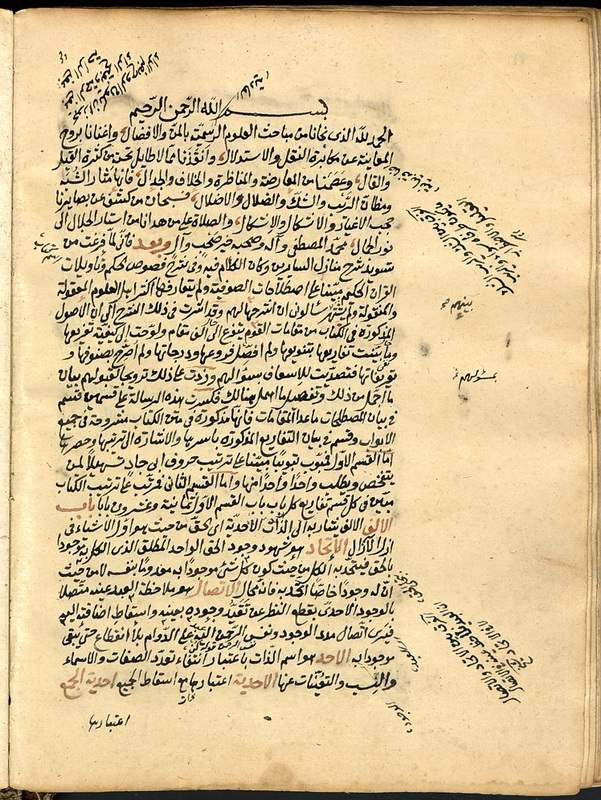 بسم الله الرحمن الرحيم
الحمد لله الذي نجانا من مباحث العلوم الرسمية بالمن والافضال واغنانا بروح
المعاينة عن مكابرة النقل والاستدلال وانقذنا مما لا طائل تحته من كثرة القيل
والقال وعصمنا من المعارضة والمناظرة والخلاف والجدال فانها مثار الشبه
ومظان الريب والشك والضلال والاضلال فسبحان من كشف عن بصايرنا
حجب الاغيار والاشكال والاشكال والصلاة على من هدانا من استار الجلال الى
نور الجمال محمد المصطفى وآله وصحبه خير صحب وآل وبعد فاني لما فرغت من
تسويد شرح منازل السايرين وكان الكلام فيه وفي شرح فصوص الحكم وتأويلات
القرآن الحكيم مبنيا على اصطلاحات الصوفية ولم يتعارفها اكثر اهل العلوم المعقولة
والمنقولة ولم يشتهر سألوني ان اشرحها لهم وقد اشرت في ذلك الشرح الى ان الاصول
المذكورة في الكتاب من مقامات القوم يتفرع الى الف مقام ولوحت الى كيفية تفريعها
وما بينت تفاريعها بتنويعها ولم افصل فروعها ودرجاتها ولم اصرح بصنوفها و
تعريفاتها فتصديت للاسعاف بسؤالهم وزدت على ذلك ترويحا لقبولهم بيان
ما اجمل من ذلك وتفصيل ما اهمل هنالك فكسرت هذه الرسالة على قسمين قسم
في بيان المصطلحات ما عدا المقامات فانها مذكورة في متن الكتاب مشروحة في جميع
الابواب وقسم في بيان التفاريع المذكورة باسرها والاشارة الى ترتيبها وحصرها
اما القسم الاول فمبوب تبويبا مبنيا على ترتيب حروف ابي جاد تسهيلا لمن
يتفحص ويطلب واحدا واحدا منها واما القسم الثاني فمرتب على ترتيب الكتاب
مبين في كل قسم تفاريع كل باب باب القسم الاول ثمانية وعشرون بابا باب
الالف الالف يشار به الى الذات الاحدية اى الحق من حيث هو اول الاشياء في
ازل الآزال الاتحاد هو شهود وجود الحق الواحد المطلق الذي الكل به موجود
بالحق فيتحد به الكل من حيث كون كل شئ موجودا به معدوما بنفسه لا من حيث
ان له وجودا خاصا اتحد به فانه محال الاتصال هو ملاحظة العبد عينه متصلا
بالوجود الاحدى بقطع النظر عن تقيد وجوده بعينه واسقاط اضافته اليه
فيرى اتصال مدد الوجود ونفس الرحمن اليه على الدوام بلا انقطاع حتى يبقى
موجودا به الاحد هو اسم الذات باعتبار انتفاء تعدد الصفات والاسماء
والنسب والتعينات عنها الاحدية اعتبارها مع اسقاط الجميع احدية الجمع
اعتبارها
بينهم
بسؤلهم